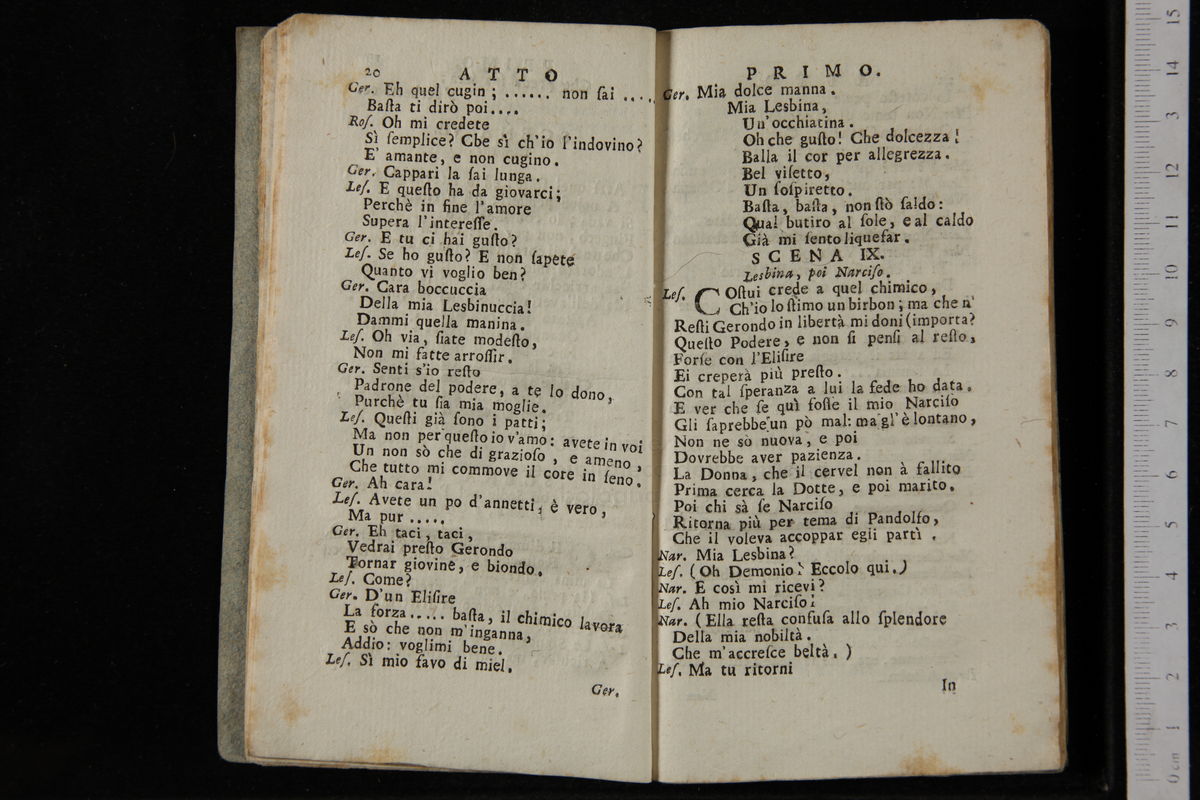 20 ATTO
Ger. Eh quel cugin ; ...... non ſai ....
Baſta ti dirò poi....
Roſ. Oh mi credete
Sì ſemplice? Cbe sì ch'io l'indovino?
E' amante, e non cugino.
Ger. Cappari la ſai lunga.
Leſ. E queſto ha da giovarci;
Perchè in fine l'amore
Supera l'intereſſe.
Ger. E tu ci hai guſto?
Leſ. Se ho guſto? E non ſapete
Quanto vi voglio ben?
Ger. Cara boccuccia
Della mia Lesbinuccia!
Dammi quella manina.
Leſ. Oh via, ſiate modeſto,
Non mi fatte arroſſir.
Ger. Senti s'io reſto
Padrone del podere, a te lo dono,
Purchè tu ſia mia moglie.
Leſ. Queſti già ſono i patti;
Ma non per queſto io v'amo: avete in voi
Un non sò che di grazioſo, e ameno,
Che tutto mi commove il core in ſeno.
Ger. Ah cara!
Leſ. Avete un po d'annetti, è vero,
Ma pur .....
Ger. Eh taci, taci,
Vedrai preſto Gerondo
Tornar giovine, e biondo.
Leſ. Come?
Ger. D'un Eliſire
La forza..... baſta, il chimico lavora
E sò che non m'inganna,
Addio: voglimi bene.
Leſ. Sì mio favo di miel.
Ger.
PRIMO.
Ger. Mia dolce manna.
Mia Lesbina,
Un'occhiatina.
Oh che guſto! Che dolcezza!
Balla il cor per allegrezza.
Bel viſetto,
Un ſoſpiretto.
Baſta, baſta, non ſtò ſaldo:
Qual butiro al ſole, e al caldo
Già mi ſento liquefar.
SCENA IX.
Lesbina, poi Narciſo.
Leſ. COſtui crede a quel chimico,
Ch'io lo ſtimo un birbon; ma che n'
Reſti Gerondo in libertà mi doni (importa?
Queſto Podere, e non ſi penſi al reſto,
Forſe con l'Eliſire
Ei creperà più preſto.
Con tal ſperanza a lui la fede ho data.
E ver che ſe quì foſſe il mio Narciſo
Gli ſaprebbe un pò mal: ma gl'è lontano,
Non ne sò nuova, e poi
Dovrebbe aver pazienza.
La Donna, che il cervel non à fallito
Prima cerca la Dotte, e poi marito.
Poi chi sà ſe Narciſo
Ritorna più per tema di Pandolfo,
Che il voleva accoppar egli partì.
Nar. Mia Lesbina?
Leſ. (Oh Demonio! Eccolo qui.)
Nar. E così mi ricevi?
Leſ. Ah mio Narciſo!
Nar. (Ella reſta confuſa allo ſplendore
Della mia nobiltà.
Che m'accreſce beltà.)
Leſ. Ma tu ritorni
In
0 cm 1 2 3 4 5 6 7 8 9 10 11 12 3 14 15